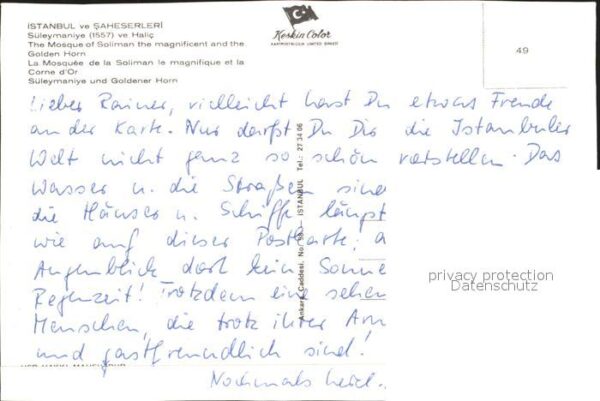 İSTANBUL ve ŞAHESERLERİ
Süleymaniye (1557) ve Haliç
The Mosque of Soliman the magnificent and the
Golden Horn
La Mosquée de la Soliman le magnifique et la
Corne d'Or
Süleymaniye und Goldener Horn
Keskin Color
KARTPOSTALCILIK LIMITED ŞİRKETİ
49
Lieber Rainer, vielleicht hast Du etwas Freude
an der Karte. Nur darfst Du Dir die Istanbuler
Welt nicht ganz so schön vorstellen. Das
Wasser u. die Straßen sind
die Häuser u. Schiffe längst
wie auf dieser Postkarte,
Augenblick dort kein Sonne
Regenzeit! Trotzdem eine sehen
Menschen, die trotz ihrer Arm
und gastfreundlich sind!
Nochmals herzl.
Ankara Caddesi, No. 98 — İSTANBUL Tel.: 27 34 06
privacy protection
Datenschutz